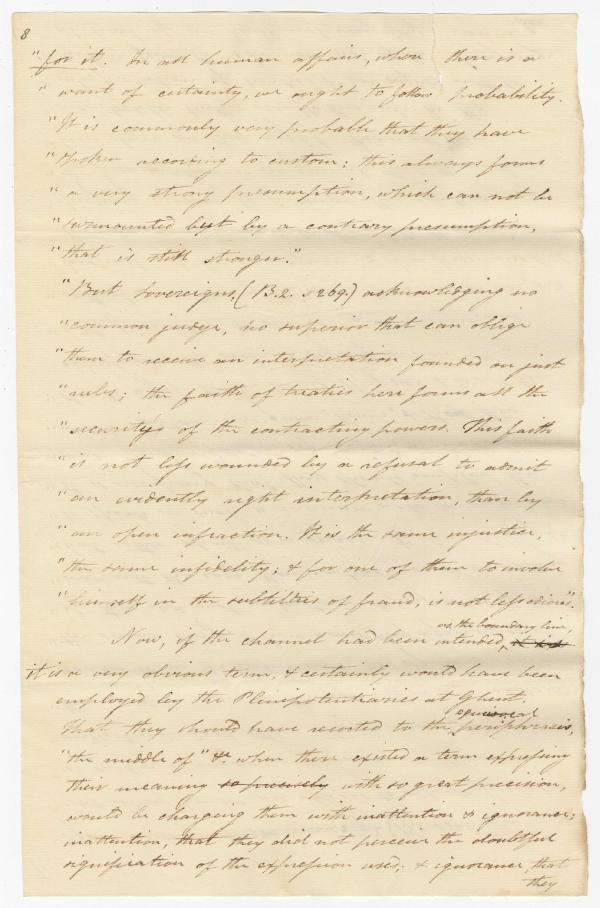 8
" for it. In all human affairs, when there is a
" want of certainty, we ought to follow probability.
" It is commonly very probable that they have
" spoken according to custom; this always forms
" a very strong presumption, which can not be
" surmounted but by a contrary presumption,
" that is still stronger."
" But Sovereigns, (B. 2. s 269.) acknowledging no
" common judge, no superior that can oblige
" them to receive an interpretation founded on just
" rules; the faith of treaties here forms all the
" security of the contracting powers. This faith
" is not less wounded by a refusal to admit
" an evidently right interpretation, than by
" an open infraction. It is the same injustice,
" the same infidelity; & for one of them to involve
" himself in the subtilties of fraud, is not less odious".
as the boundary line,
Now, if the channel had been intended,
it is a very obvious term, & certainly would have been
employed by the Plenipotentiaries at Ghent.
equivocal
That they should have resorted to the periphrasis,
"the middle of" &c. when there existed a term expressing
their meaning so precisely with so great precision,
would be charging them with inattention & ignorance;
inattention, that they did not perceive the doubtful
signification of the expression used; & ignorance, that
they